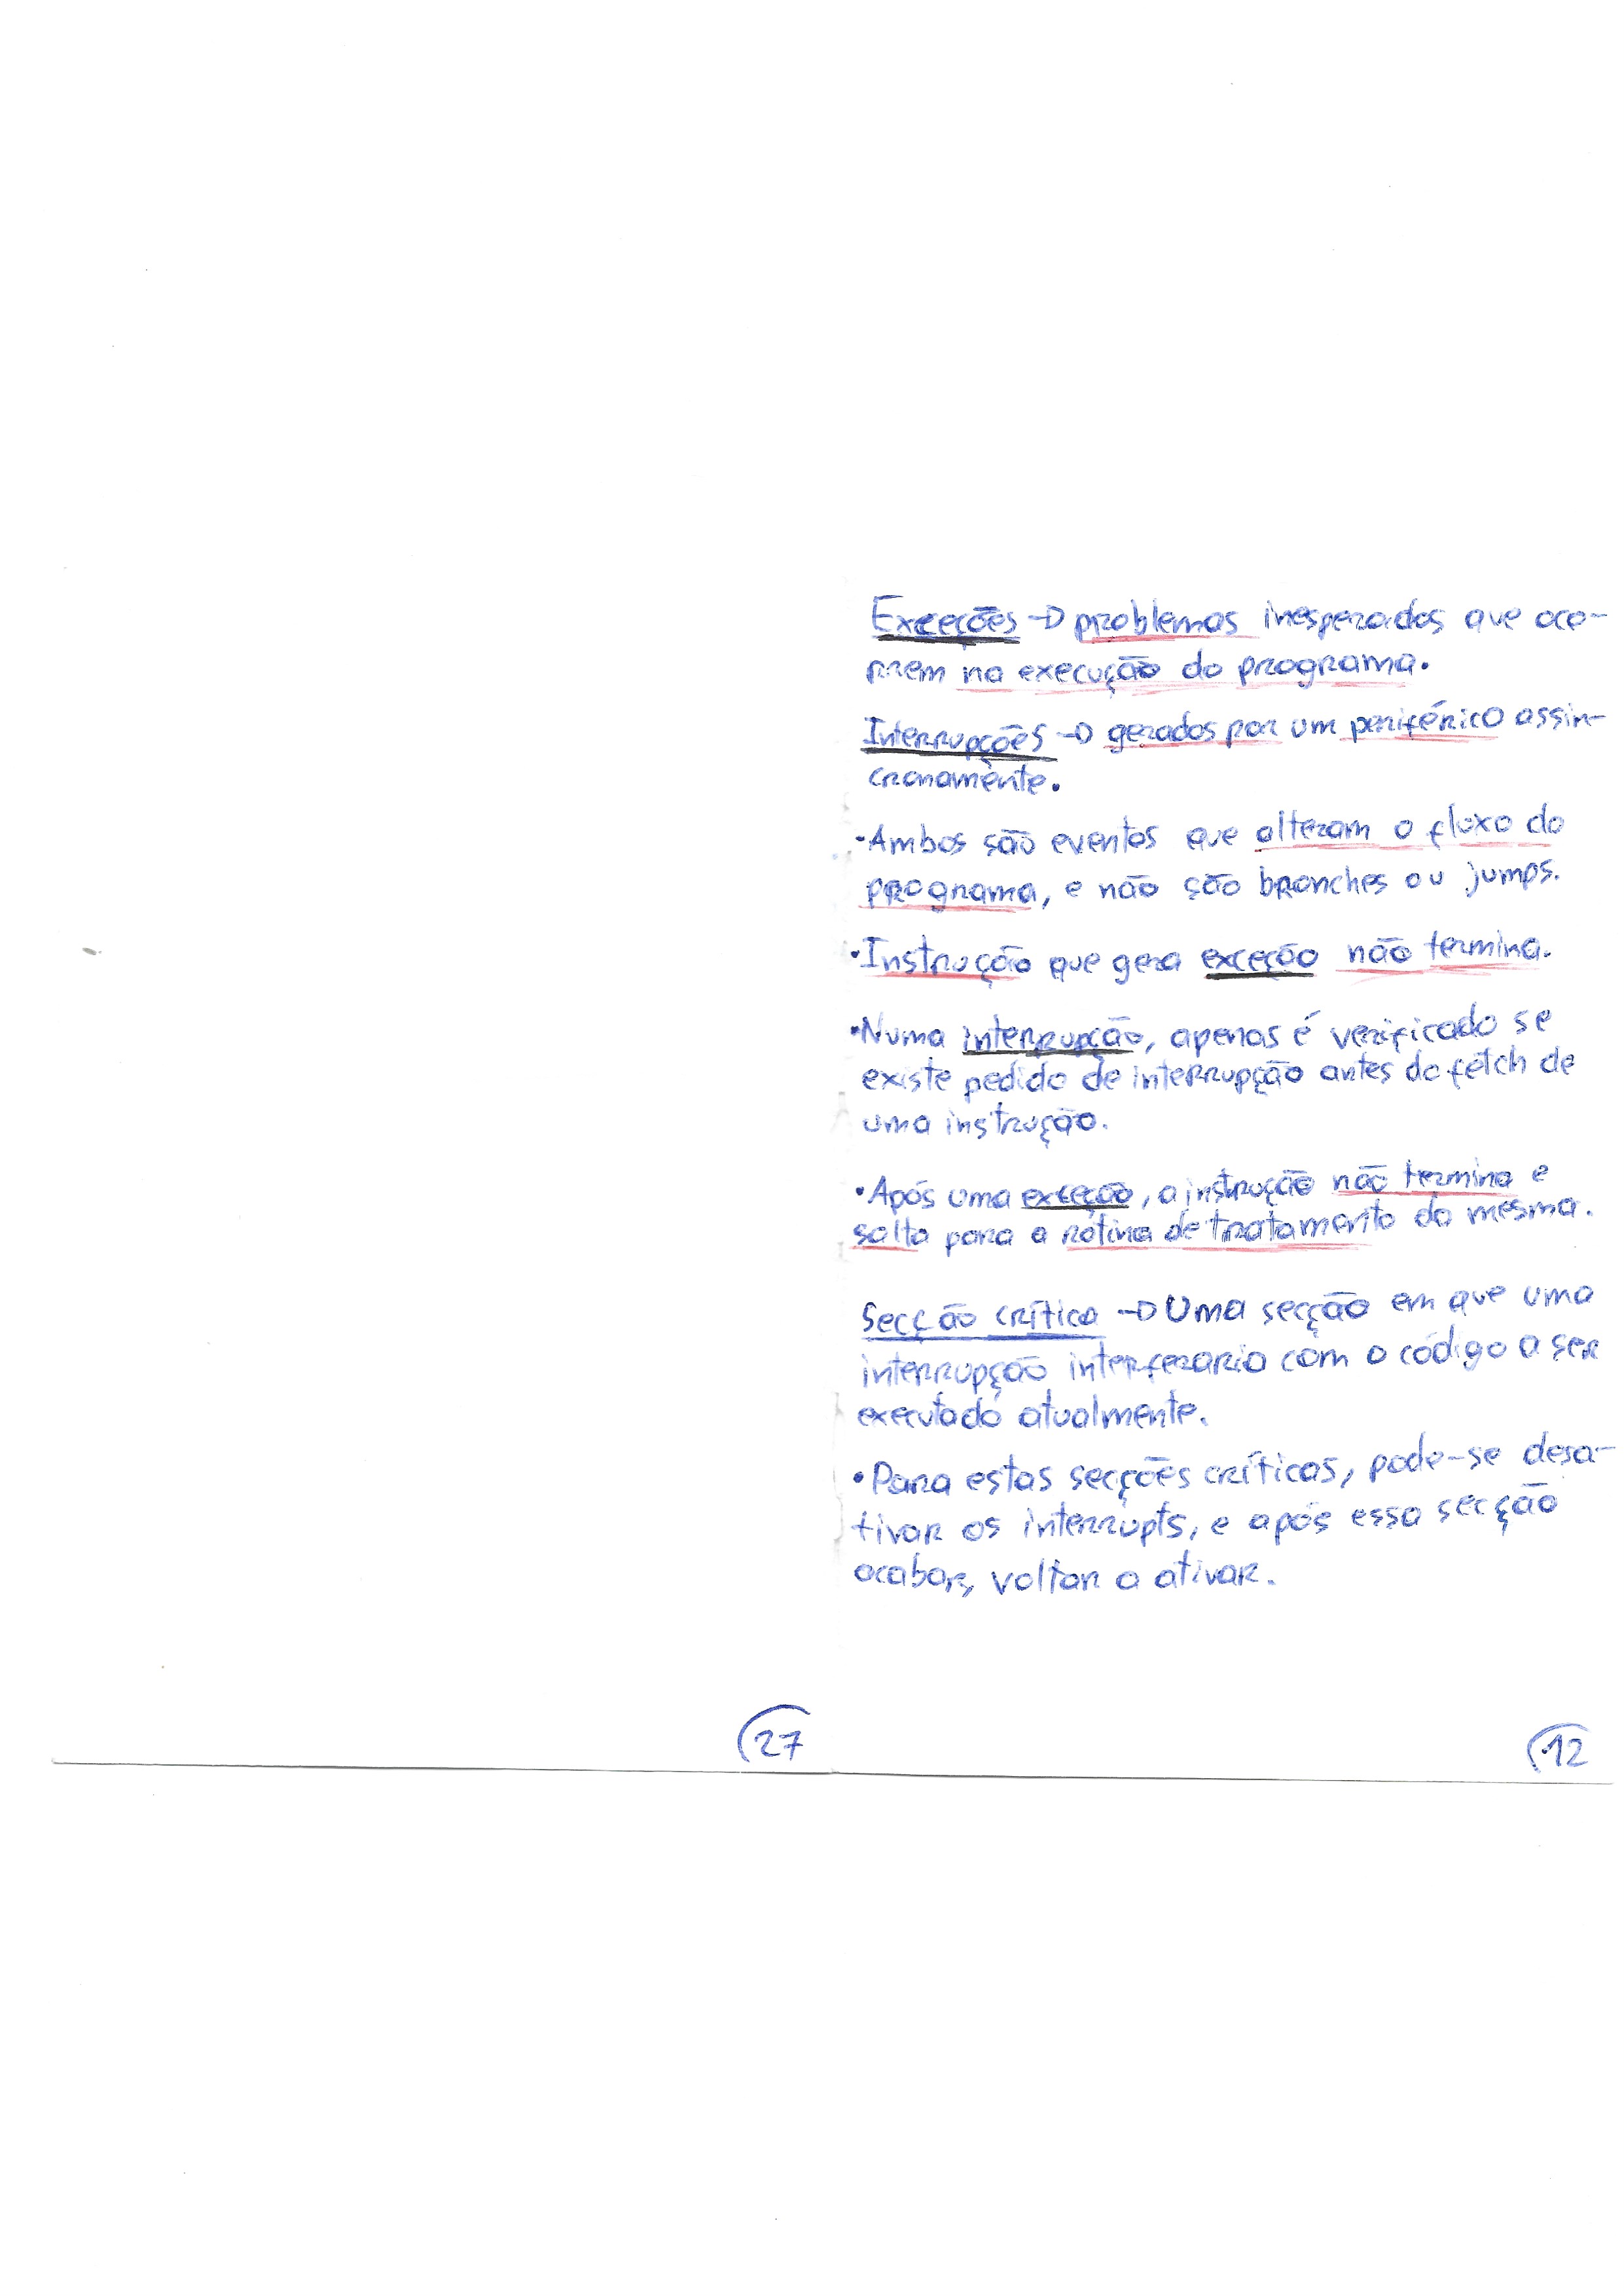 Exceções → problemas inesperados que oco-
rrem na execução do programa.
Interrupções → gerados por um periférico assin-
cronamente.
•Ambos são eventos que alteram o fluxo do
programa, e não são branches ou jumps.
•Instrução que gera exceção não termina.
•Numa interrupção, apenas é verificado se
existe pedido de interrupção antes do fetch de
uma instrução.
•Após uma exceção, a instrução não termina e
salta para a rotina de tratamento da mesma.
Secção crítica → Uma secção em que uma
interrupção interferaria com o código a ser
executado atualmente.
•Para estas secções críticas, pode-se desa-
tivar os interrupts, e após essa secção
acabar, voltar a ativar.
27
12